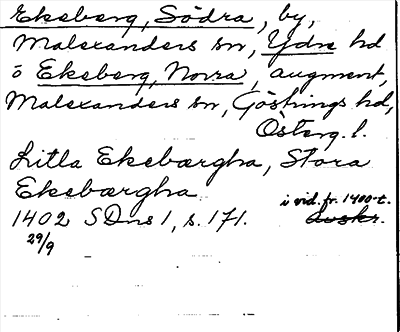 Ekeberg, Södra, by,
Malexanders sn, Ydre hd
o Ekeberg, Norra, augment,
Malexanders sn, Göstrings hd,
Österg. l.
Litla Ekebærgha, Stora
Ekebærgha
1402 SDns 1, s. 171. i vid. fr. 1400-t.
29/9 avskr.